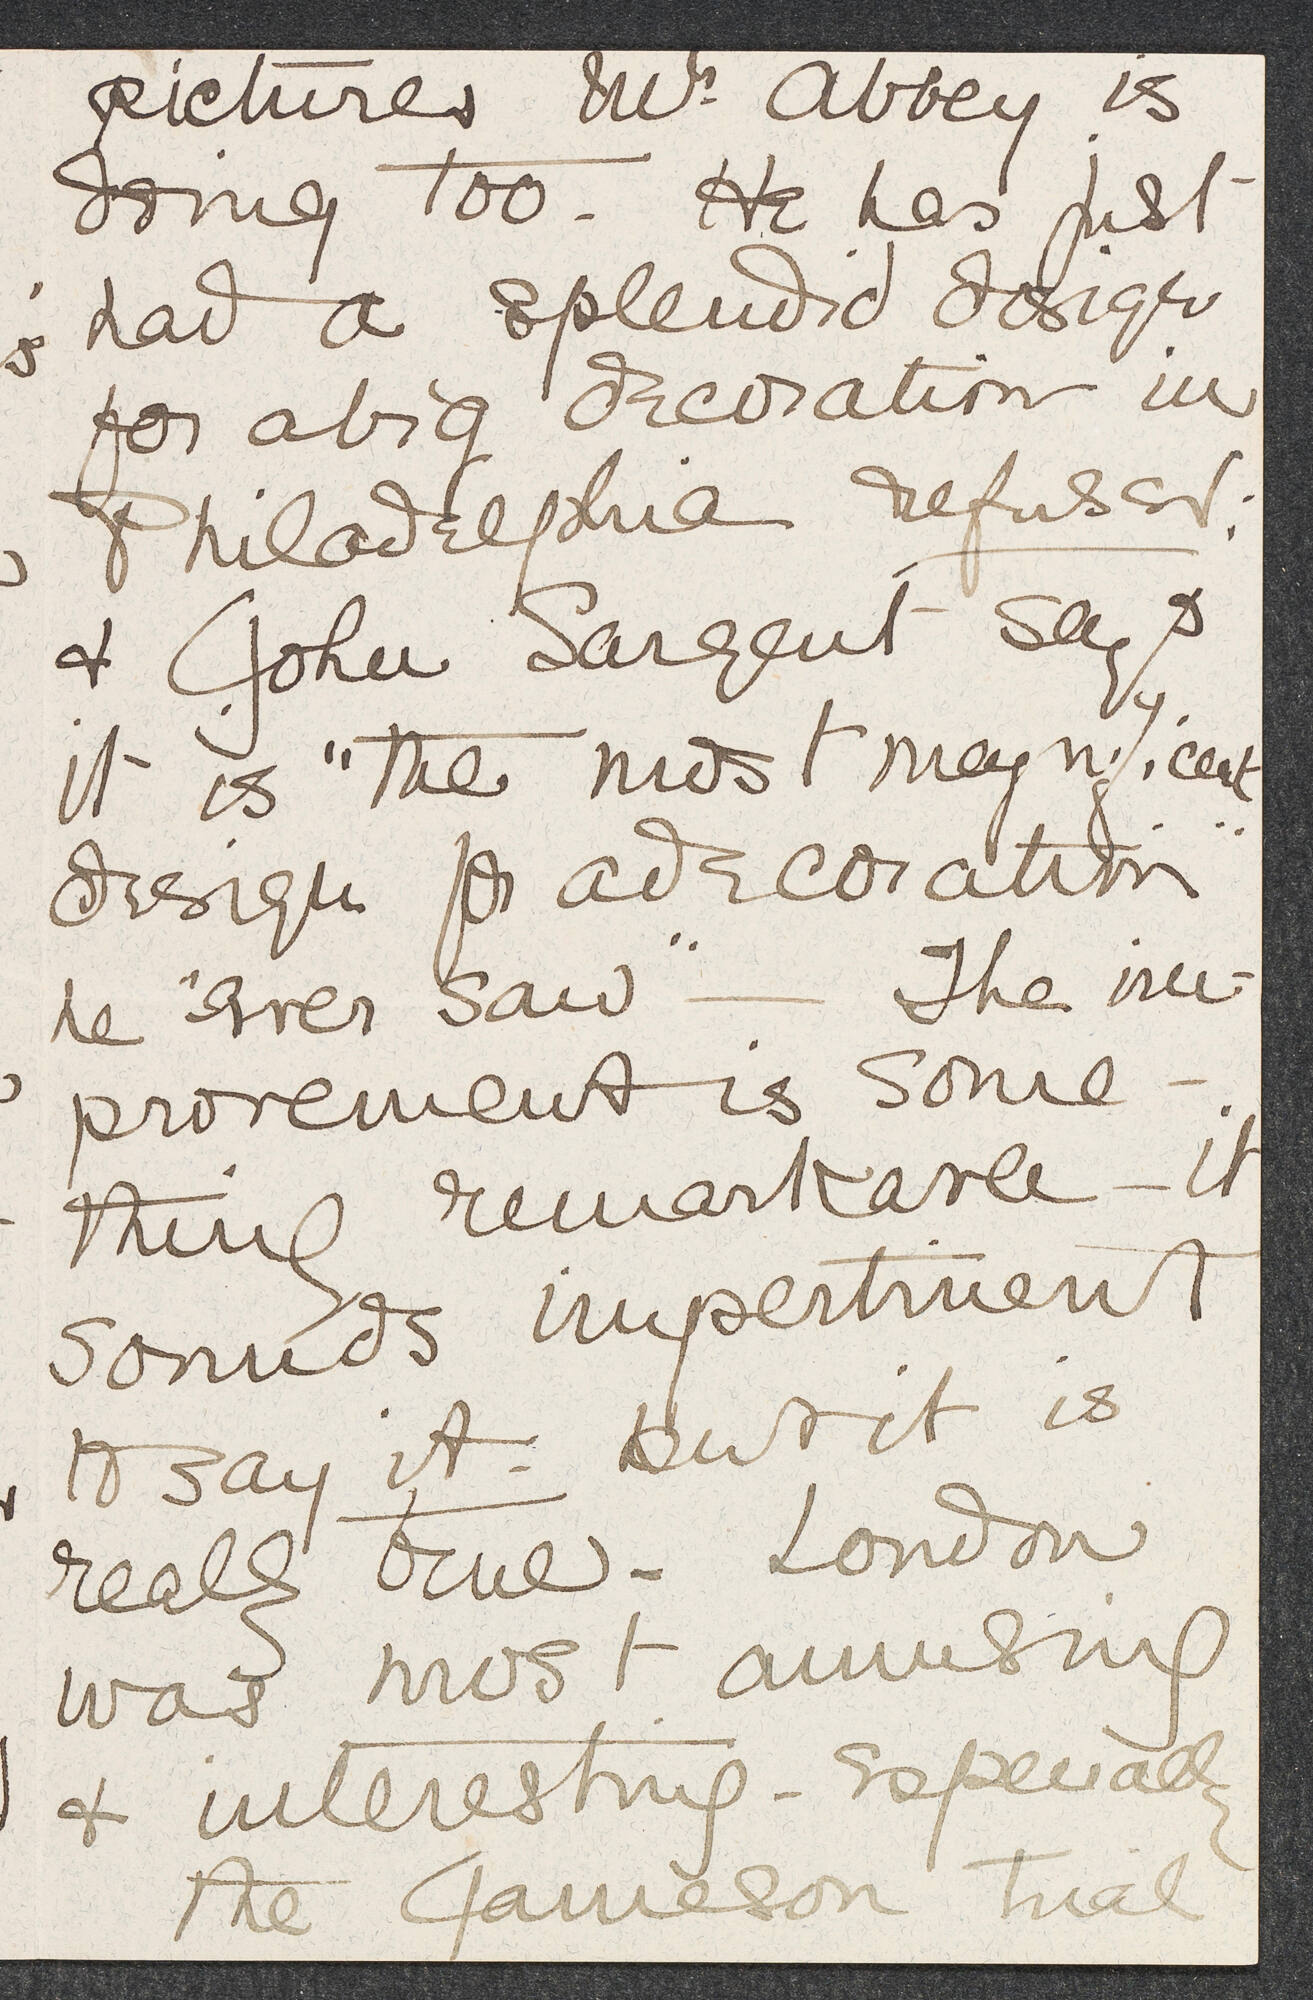 pictures Mr. Abbey is
doing too - He has just
had a splendid design
for a big decoration in
Philadelphia refused;
& John Sargent says
it is "the most magnificent
design for a decoration"
he "ever saw" — The im-
provement is some-
thing remarkable - it
sounds impertinent
to say it - but it is
really true - London
was most amusing
& interesting - especially
the Jameson trial